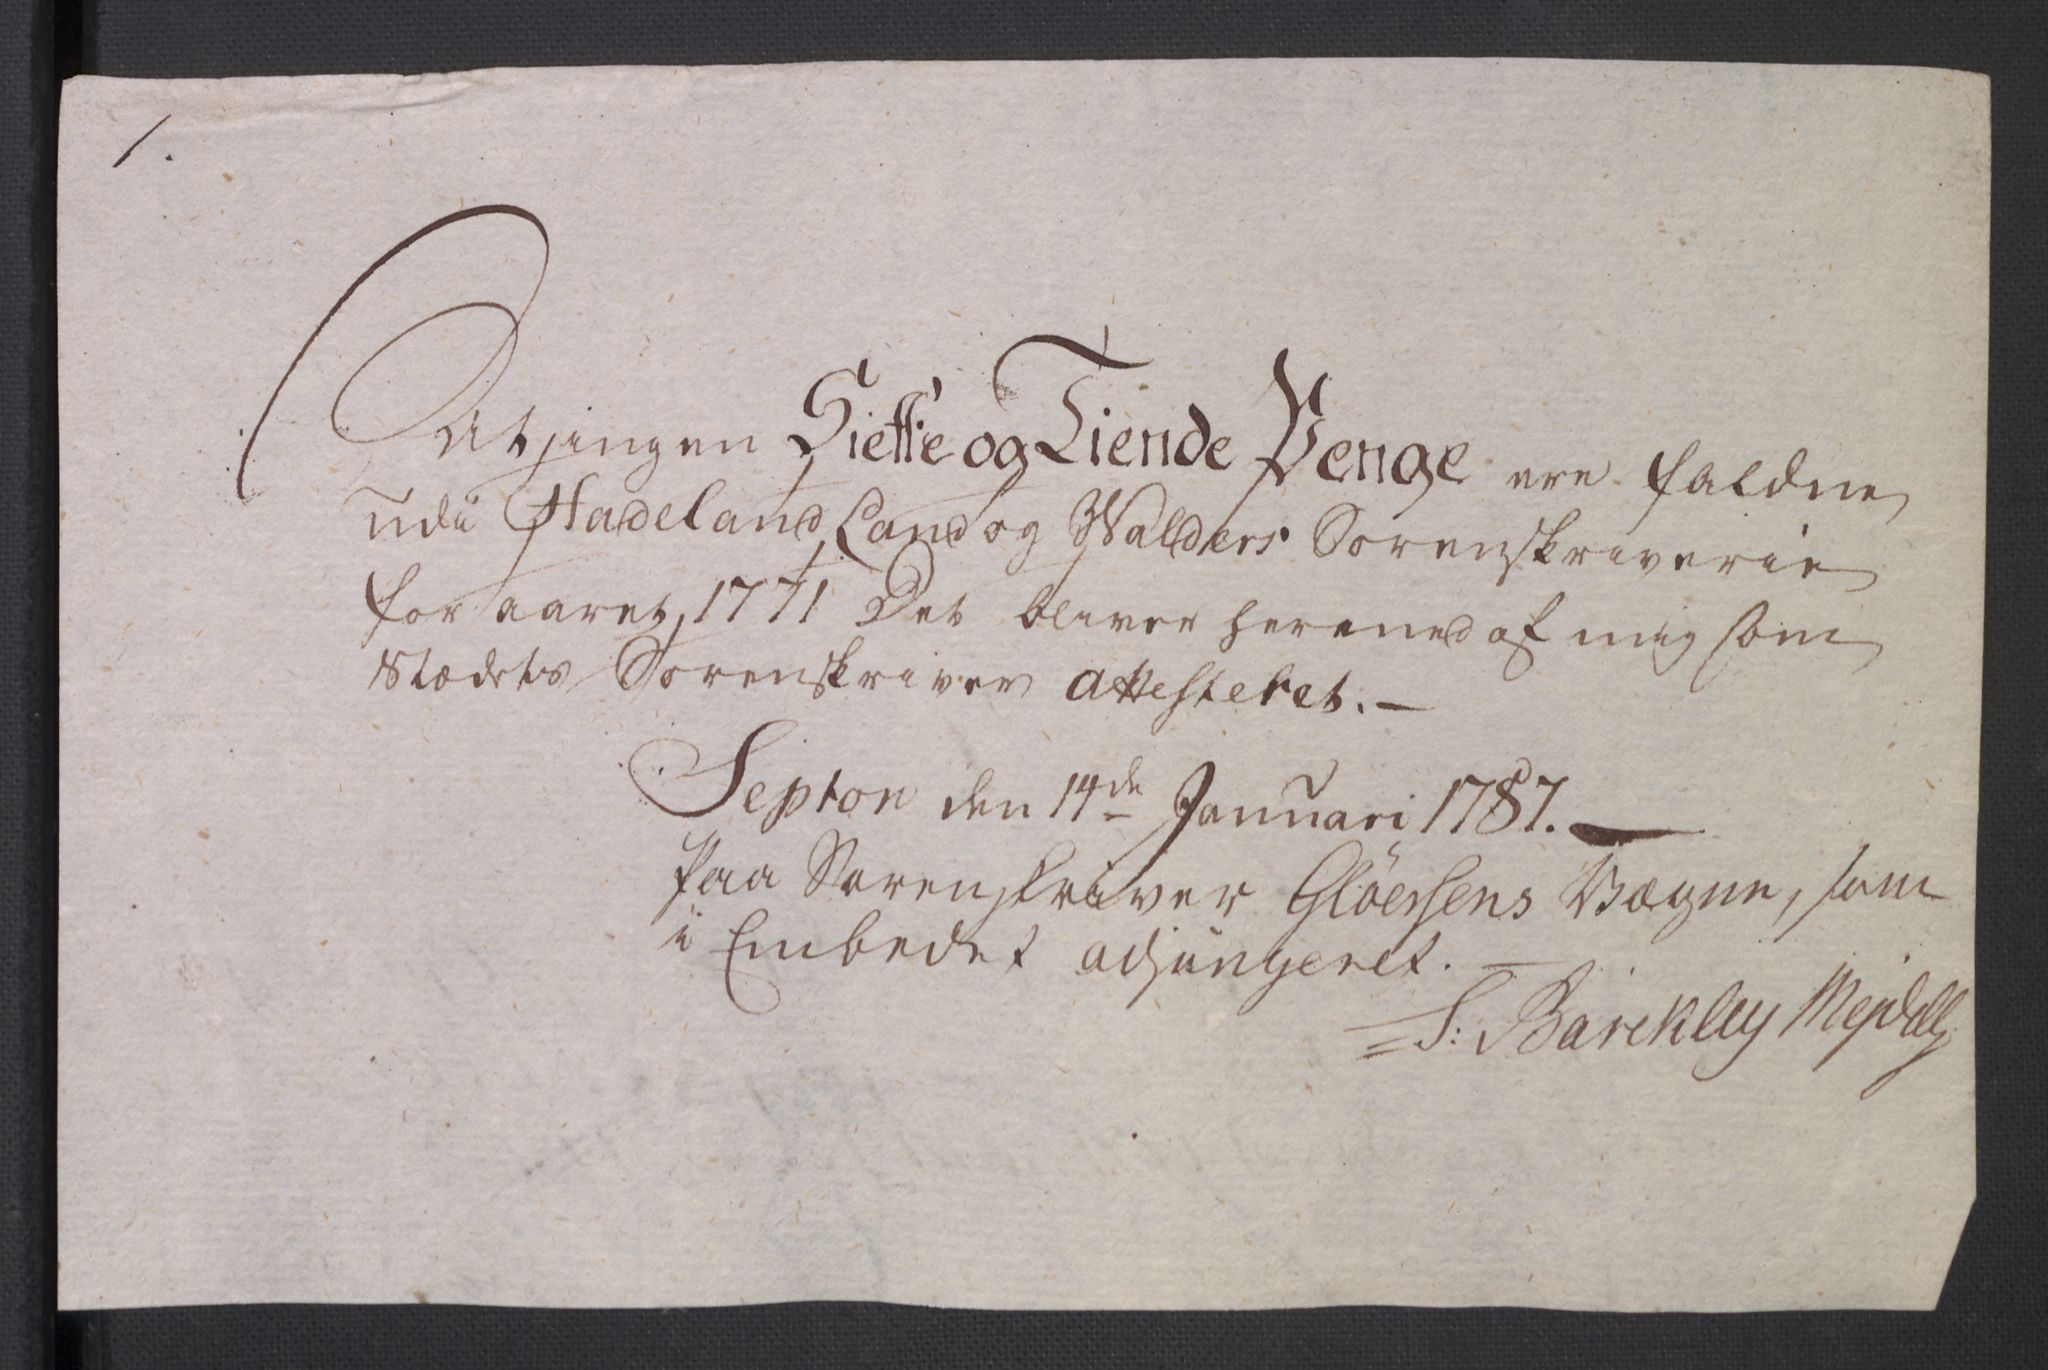 1.
At jingen Siette og Tiende Penge ere faldne
udi Hadeland, Land og Walders Sorenskriverie
for aaret, 1771 Det bliver herved af mig som
Stædets Sorenskriver attesteret. —
Septon den 14de Januari 1787. —
Paa Sorenskriver Glöersens Vægne, som
i Embedet adjungeret. —
S: Barckley Mejdell